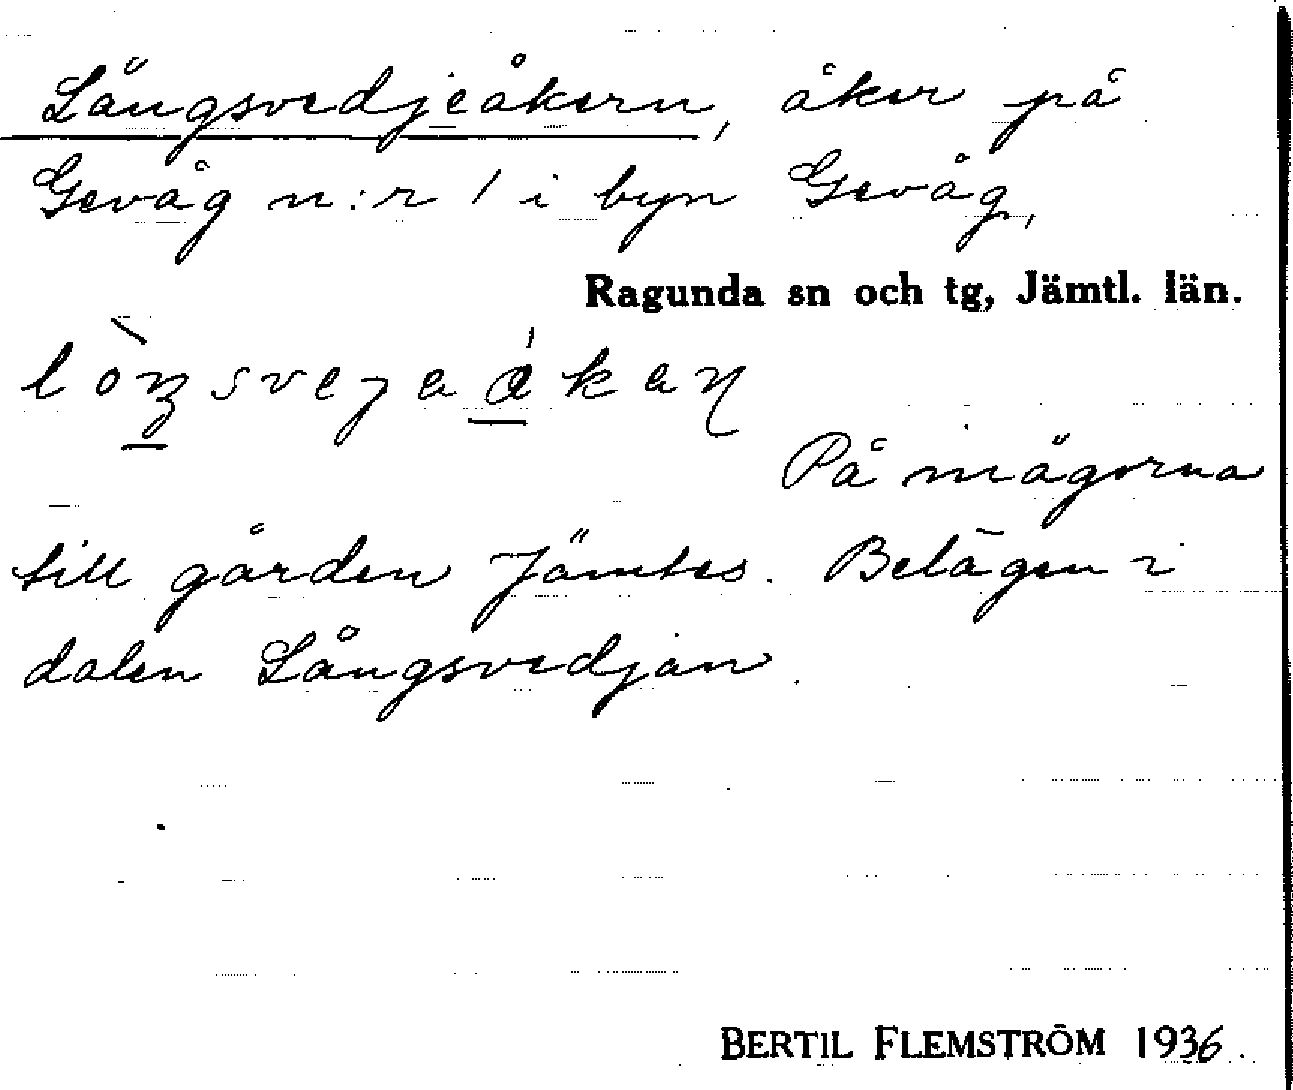 Långsvedjeåkern, åker på
Gevåg n:r 1 i byn Gevåg,
Ragunda sn och tg, Jämtl. län.
På mågorna
till gården Jämtes. Belägen i
dalen Långsvedjan.
BERTIL FLEMSTRÖM 1936.